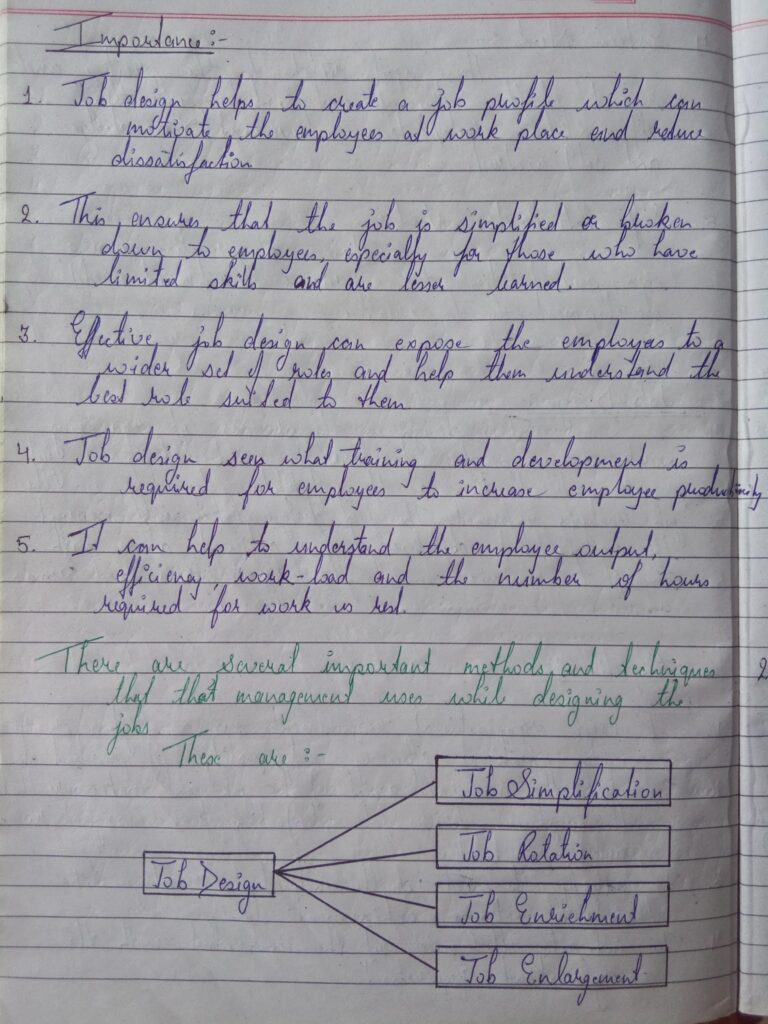 Importance:-
1. Job design helps to create a job profile which can
motivate the employees at work place and reduce
dissatisfaction
2. This ensures that the job is simplified or broken
down to employees, especially for those who have
limited skills and are lesser learned.
3. Effective job design can expose the employees to a
wider set of roles and help them understand the
best role suited to them
4. Job design sees what training and development is
required for employees to increase employee productivity
5. It can help to understand the employee output,
efficiency, work-load and the number of hours
required for work vs rest.
There are several important methods and techniques
that that management uses while designing the
jobs
These are :-
Job Simplification
Job Rotation
Job Design
Job Enrichment
Job Enlargement
2